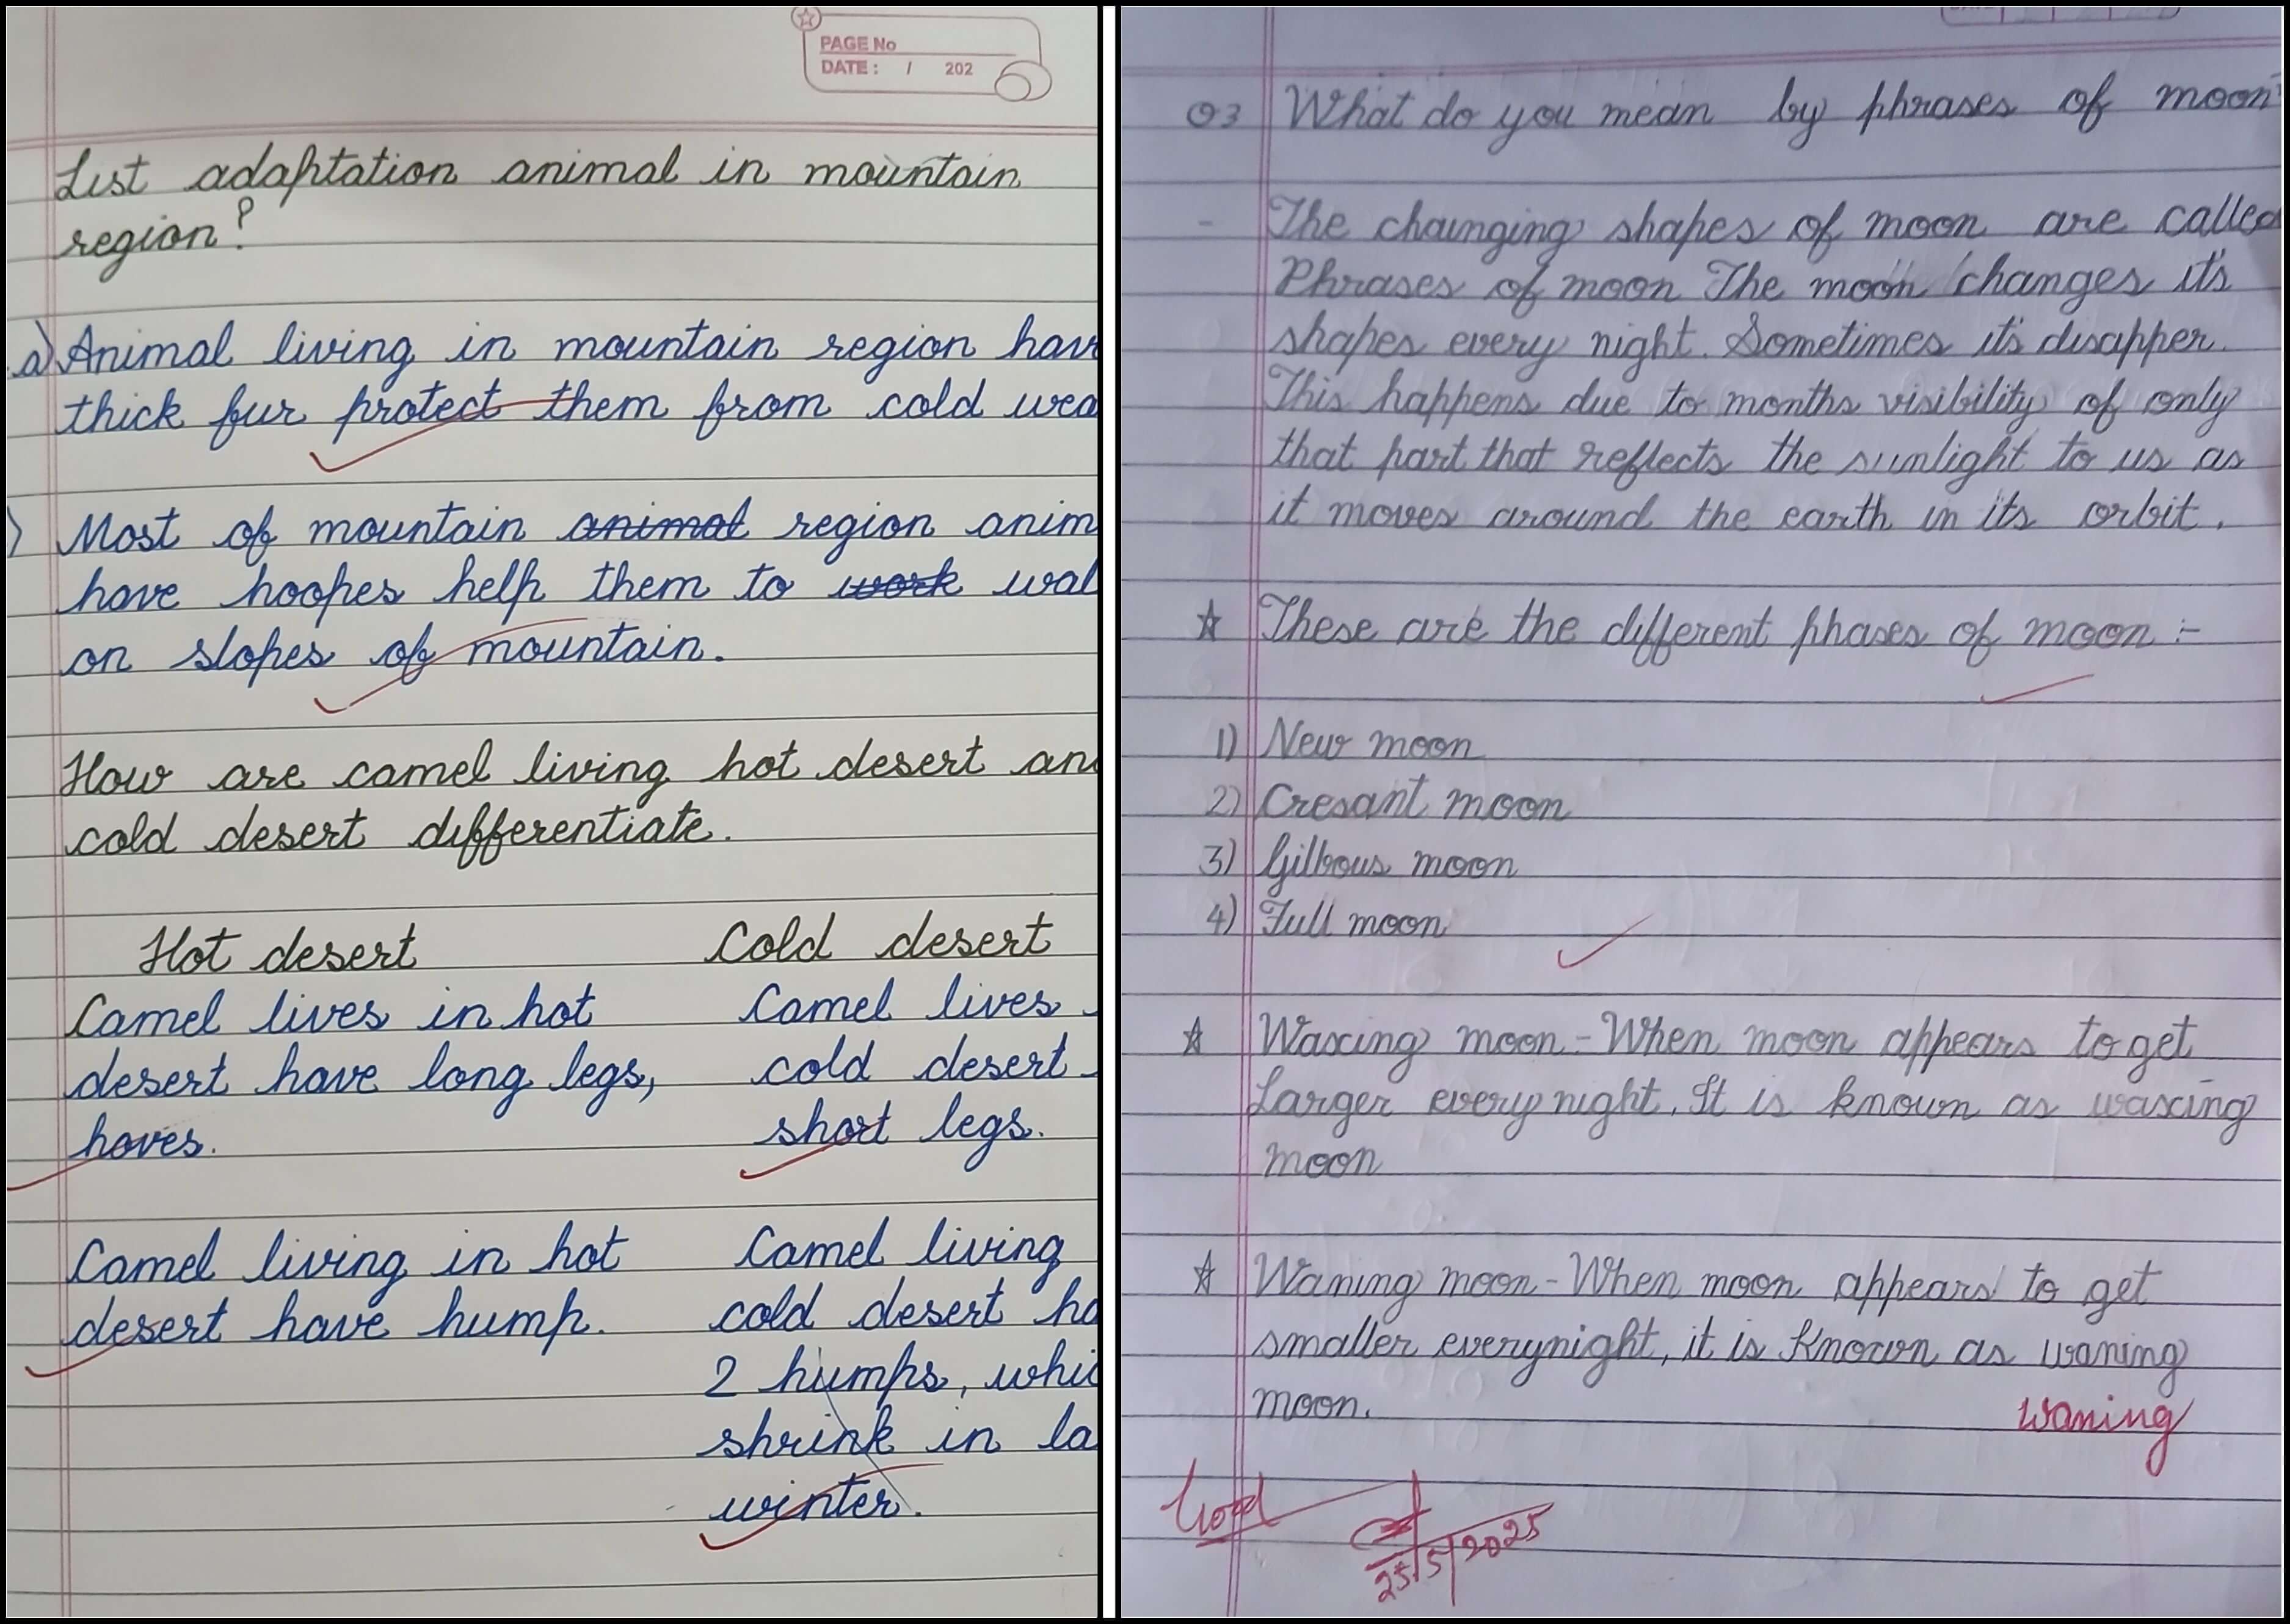 PAGE No
DATE : / 202
List adaptation animal in mountain
region?
a) Animal living in mountain region hav
thick fur protect them from cold wea
) Most of mountain animal region anim
have hoopes help them to work wal
on slopes of mountain.
How are camel living hot desert an
cold desert differentiate.
Hot desert
Camel lives in hot
desert have long legs,
hoves.
Camel living in hot
desert have hump.
Cold desert
Camel lives
cold desert
short legs.
Camel living
cold desert ha
2 humps, whic
shrink in la
winter.
Q3 What do you mean by phrases of moon?
- The changing shapes of moon are called
Phrases of moon The moon changes it's
shapes every night. Sometimes it's disapper.
This happens due to months visibility of only
that part that reflects the sunlight to us as
it moves around the earth in its orbit.
☆ These are the different phases of moon :-
1) New moon
2) Cresant moon
3) Gilbous moon
4) Full moon
☆ Waxing moon - When moon appears to get
Larger everynight. It is known as waxing
moon
☆ Waning moon - When moon appears to get
smaller everynight, it is known as waning
moon.
Waning
Good
25/5/2025